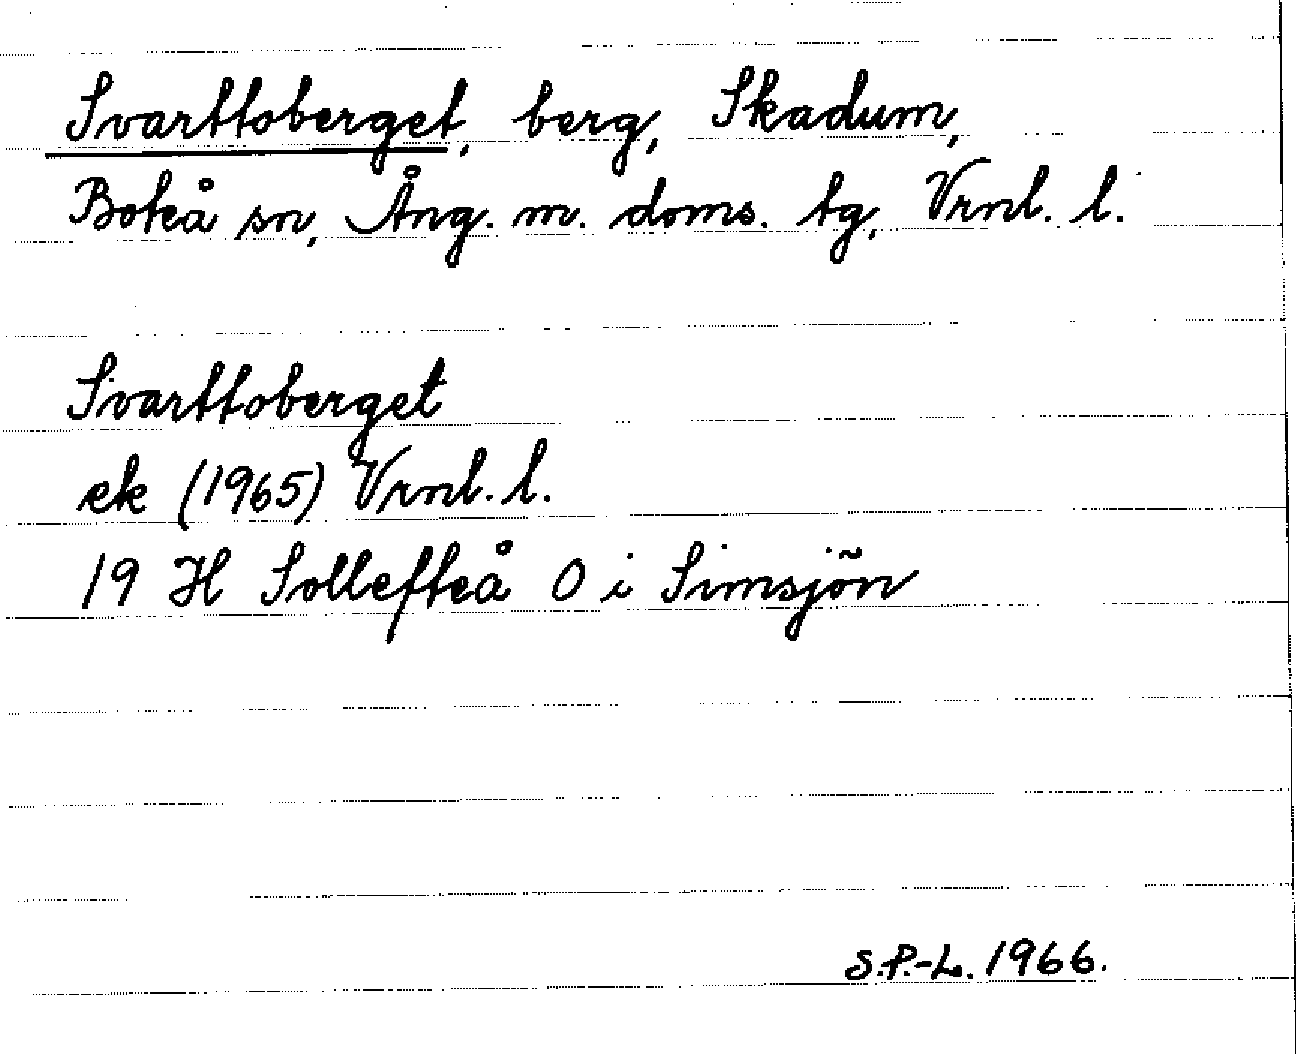 Svarttoberget, berg, Skadum,
Boteå sn, Ång. m. doms. tg, Vrnl. l.
Svarttoberget
ek (1965) Vrnl. l.
19 H Sollefteå O i Simsjön
S.P.-L. 1966.